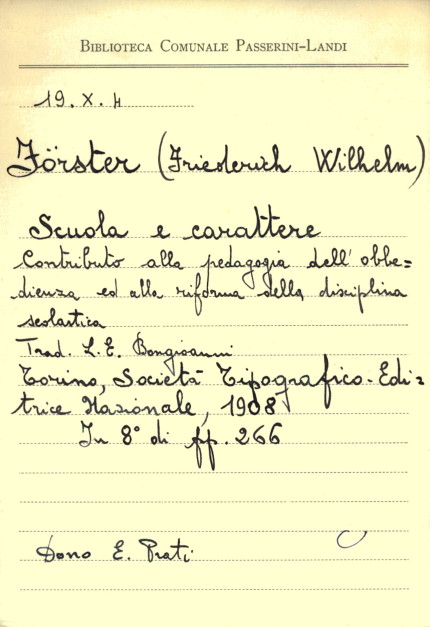 BIBLIOTECA COMUNALE PASSERINI-LANDI
19. X. 4
Förster (Friederich Wilhelm)
Scuola e carattere
Contributo alla pedagogia dell' obbe=
dienza ed alla riforma della disciplina
scolastica
Trad. L. E. Bongioanni
Torino, Società Tipografico-Edi=
trice Nazionale, 1908
In 8° di pp. 266
Dono E. Prati